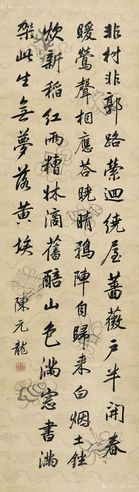 非村非郭路縈迴繞屋薔薇戶半開春
暖鶯聲相應答晚晴鴉陣自歸來白烟土銼
炊新稻紅雨糟牀滴舊醅山色滿窓書滿
架此生無夢落黃埃 陳元龍